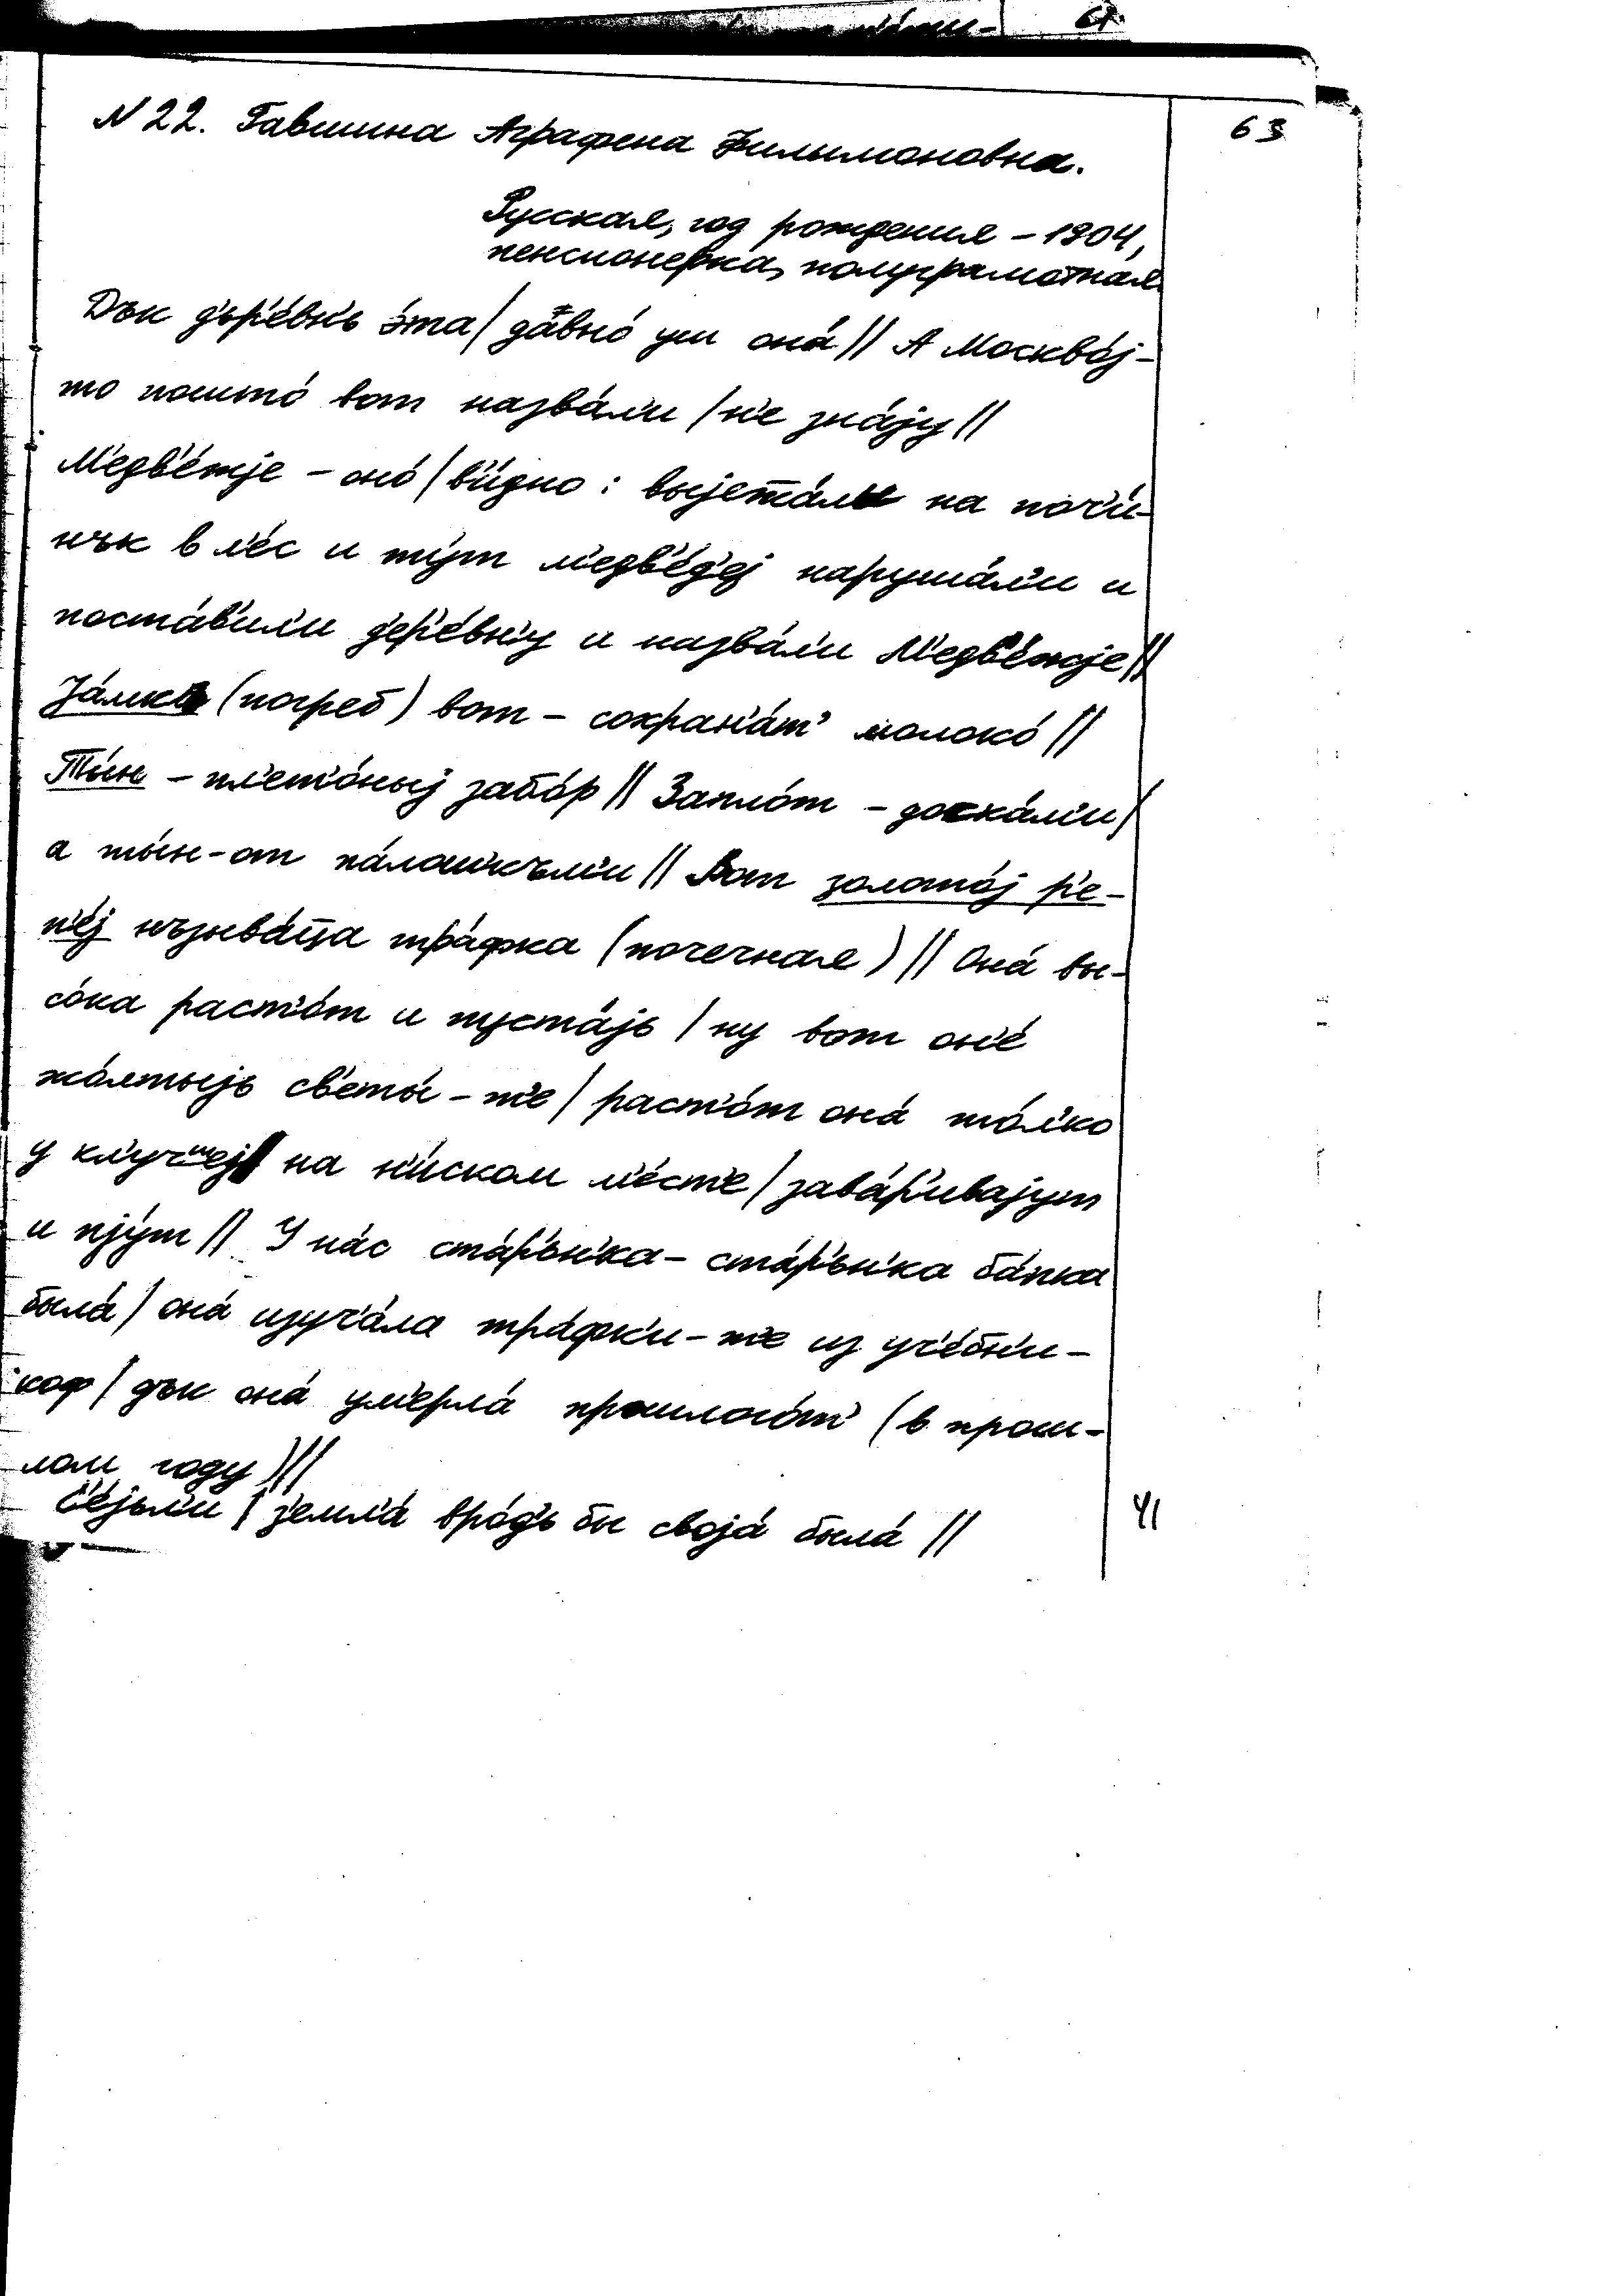 63
N 22. Гавшина Аграфена Филимоновна.
Русская, год рождения – 1904,
пенсионерка, полуграмотная.
Дък д'ър'е́вн'ь э́та / давно́ уш она́ // А Москво́j-
то пошто́ вот назва́л'и / н'е зна́jу //
М'едв'е́тjе – оно́ / в'и́дно : выjета́лы на поч'и́-
нък в л'е́с и ту́т м'едв'е́д'еj наруша́л'и и
поста́в'ил'и д'ер'е́вн'у и назва́л'и М'едв'е́жjе //
(погреб) вот – сохран'а́т' молоко́ //
Ты́н – пл'ет'о́ныj забо́р // Запло́т – доска́м'и /
а ты́н-от па́лошкъм'и // Вот золото́j р'е-
п'е́j нъзыва́ца тра́фка (почечная) // Она́ вы-
со́ка раст'о́т и густа́jь / ну вот он'е́
жо́лтыjь св'еты́ – т'е / раст'о́т она́ то́л'ко
у на н'и́ском м'е́ст'е / зава́р'иваjут
и пjу́т // У на́с ста́р'ьн'ка – ста́р'ьн'ка ба́пка
была́ / она́ изуч'а́ла тра́фк'и – т'е из уч'е́бн'и-
коф / дък она́ ум'ерла́ прошлого́т' (в прош-
лом году) //
С'е́jьл'и / з'емл'а́ вро́д'ь бы своjа́ была́ //
41